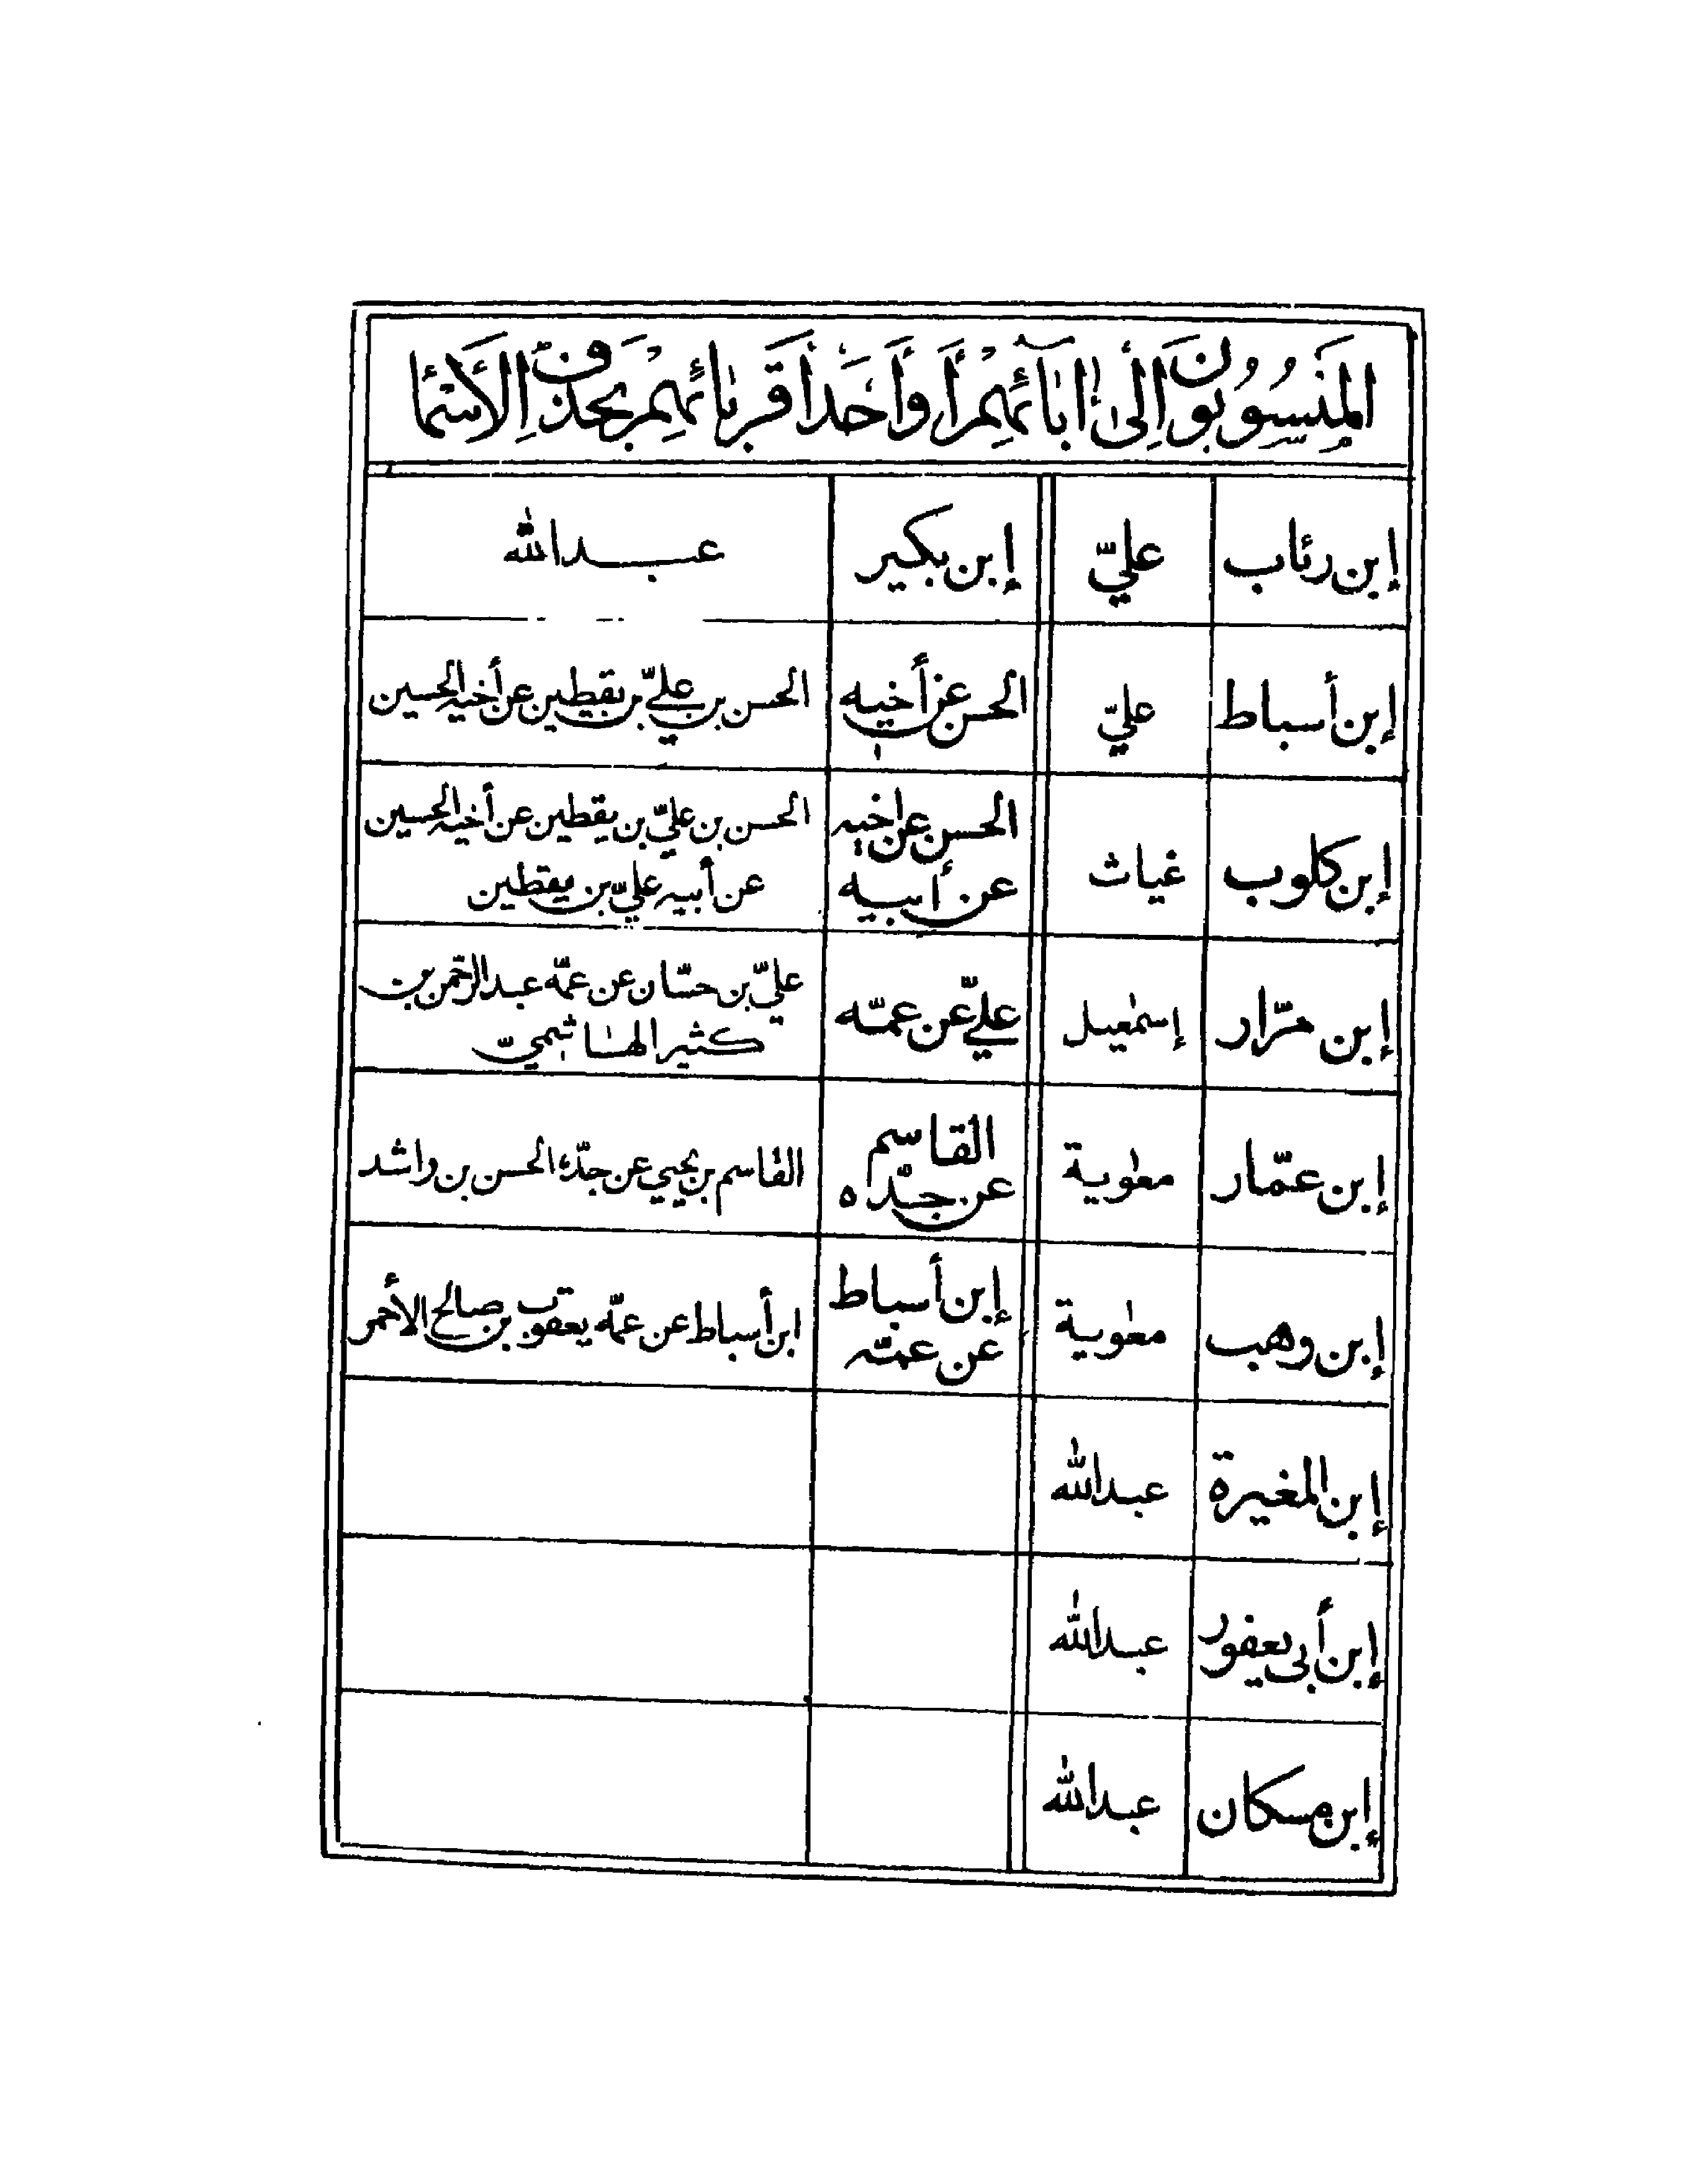 المَنسُوبُونَ إِلىٰ اٰبَآئِهِمْ أَوْ أَحَدِ أَقْرِبَائِهِمْ بِحَذْفِ الأَسْمَاء
إبن رئاب عليّ إبن بكير عبدالله
إبن أسباط عليّ الحسن عن أخيه الحسن بن عليّ بن يقطين عن أخيه الحسين
إبن كلوب غياث الحسن عن اخيه عن أبيه الحسن بن عليّ بن يقطين عن أخيه الحسين
عن أبيه عليّ بن يقطين
إبن مرّار إسمٰعيل عليّ عن عمّه عليّ بن حسّان عن عمّه عبدالرّحمن بن
كثير الهاشميّ
إبن عمّار معٰوية القاسم
عن جدّه القاسم بن يحيي عن جدّه الحسن بن راشد
إبن وهب معٰوية إبن أسباط
عن عمّه ابن أسباط عن عمّه يعقوب بن صالح الأحمر
إبن المغيرة عبدالله
إبن أبي يعفور عبدالله
إبن مسكان عبدالله